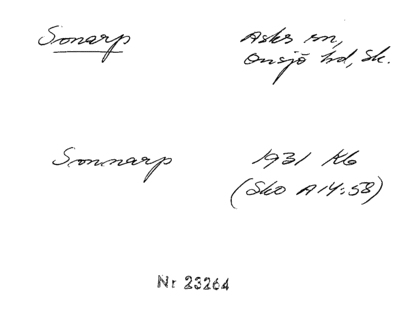 Sonarp
Asks sn,
Onsjö hd, Sk.
Sonnarp
1931 Kb
(Sko A14:58)
Nr 23264